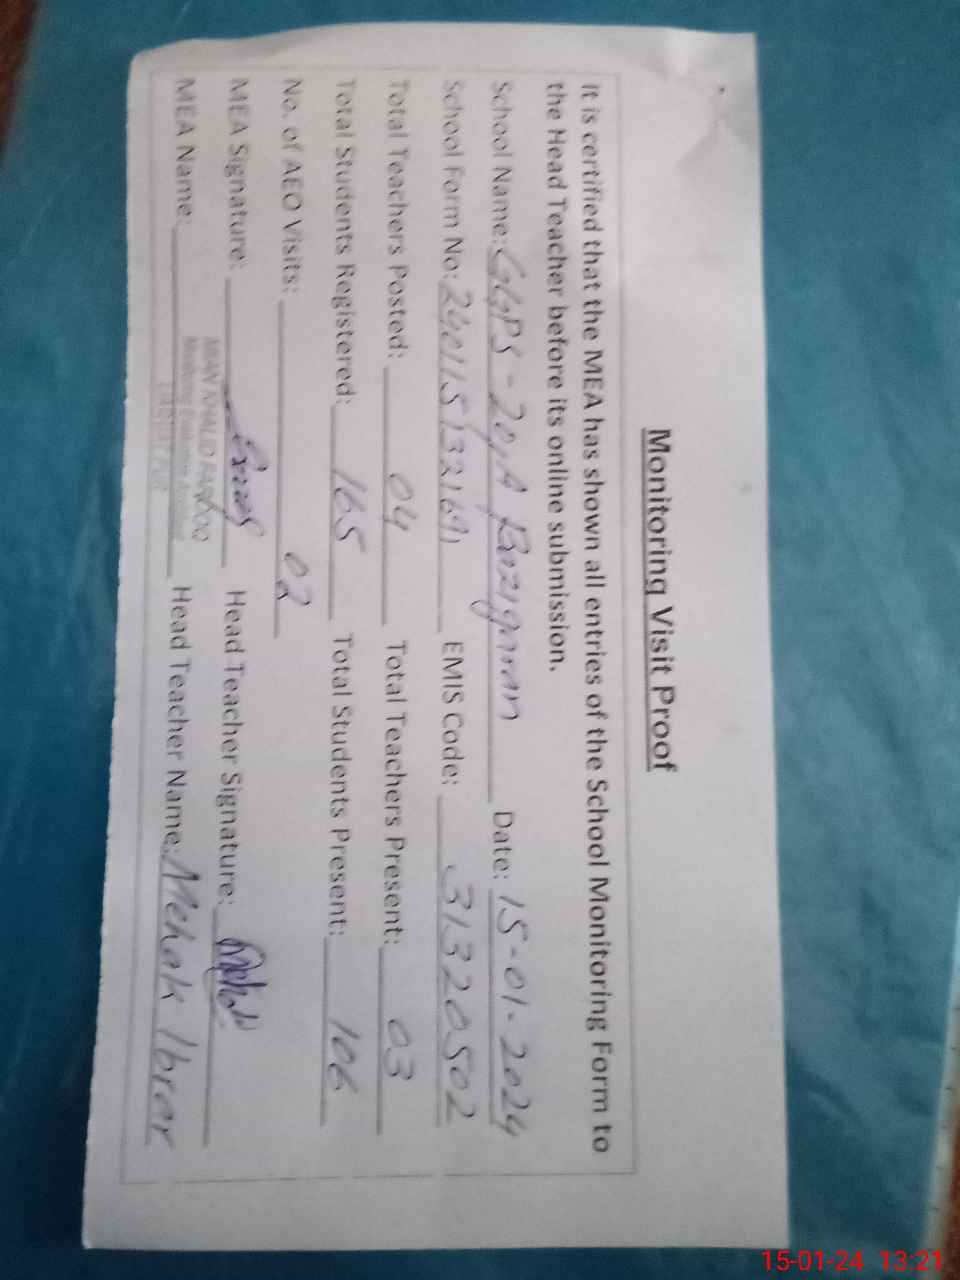 Monitoring Visit Proof
It is certified that the MEA has shown all entries of the School Monitoring Form to
the Head Teacher before its online submission.
School Name: GGPS-20,A Bazigaran Date: 15-01-2024
School Form No: EMIS Code: 31320502
Total Teachers Posted: 04 Total Teachers Present: 03
Total Students Registered: 165 Total Students Present: 106
No. of AEO Visits: 02
MEA Signature: Head Teacher Signature: Mehak
MIAN KHALID FAROOQ
Monitoring Evaluation Assistant
MEA Name: Head Teacher Name: Mehak Ibrar
15-01-24 13:21